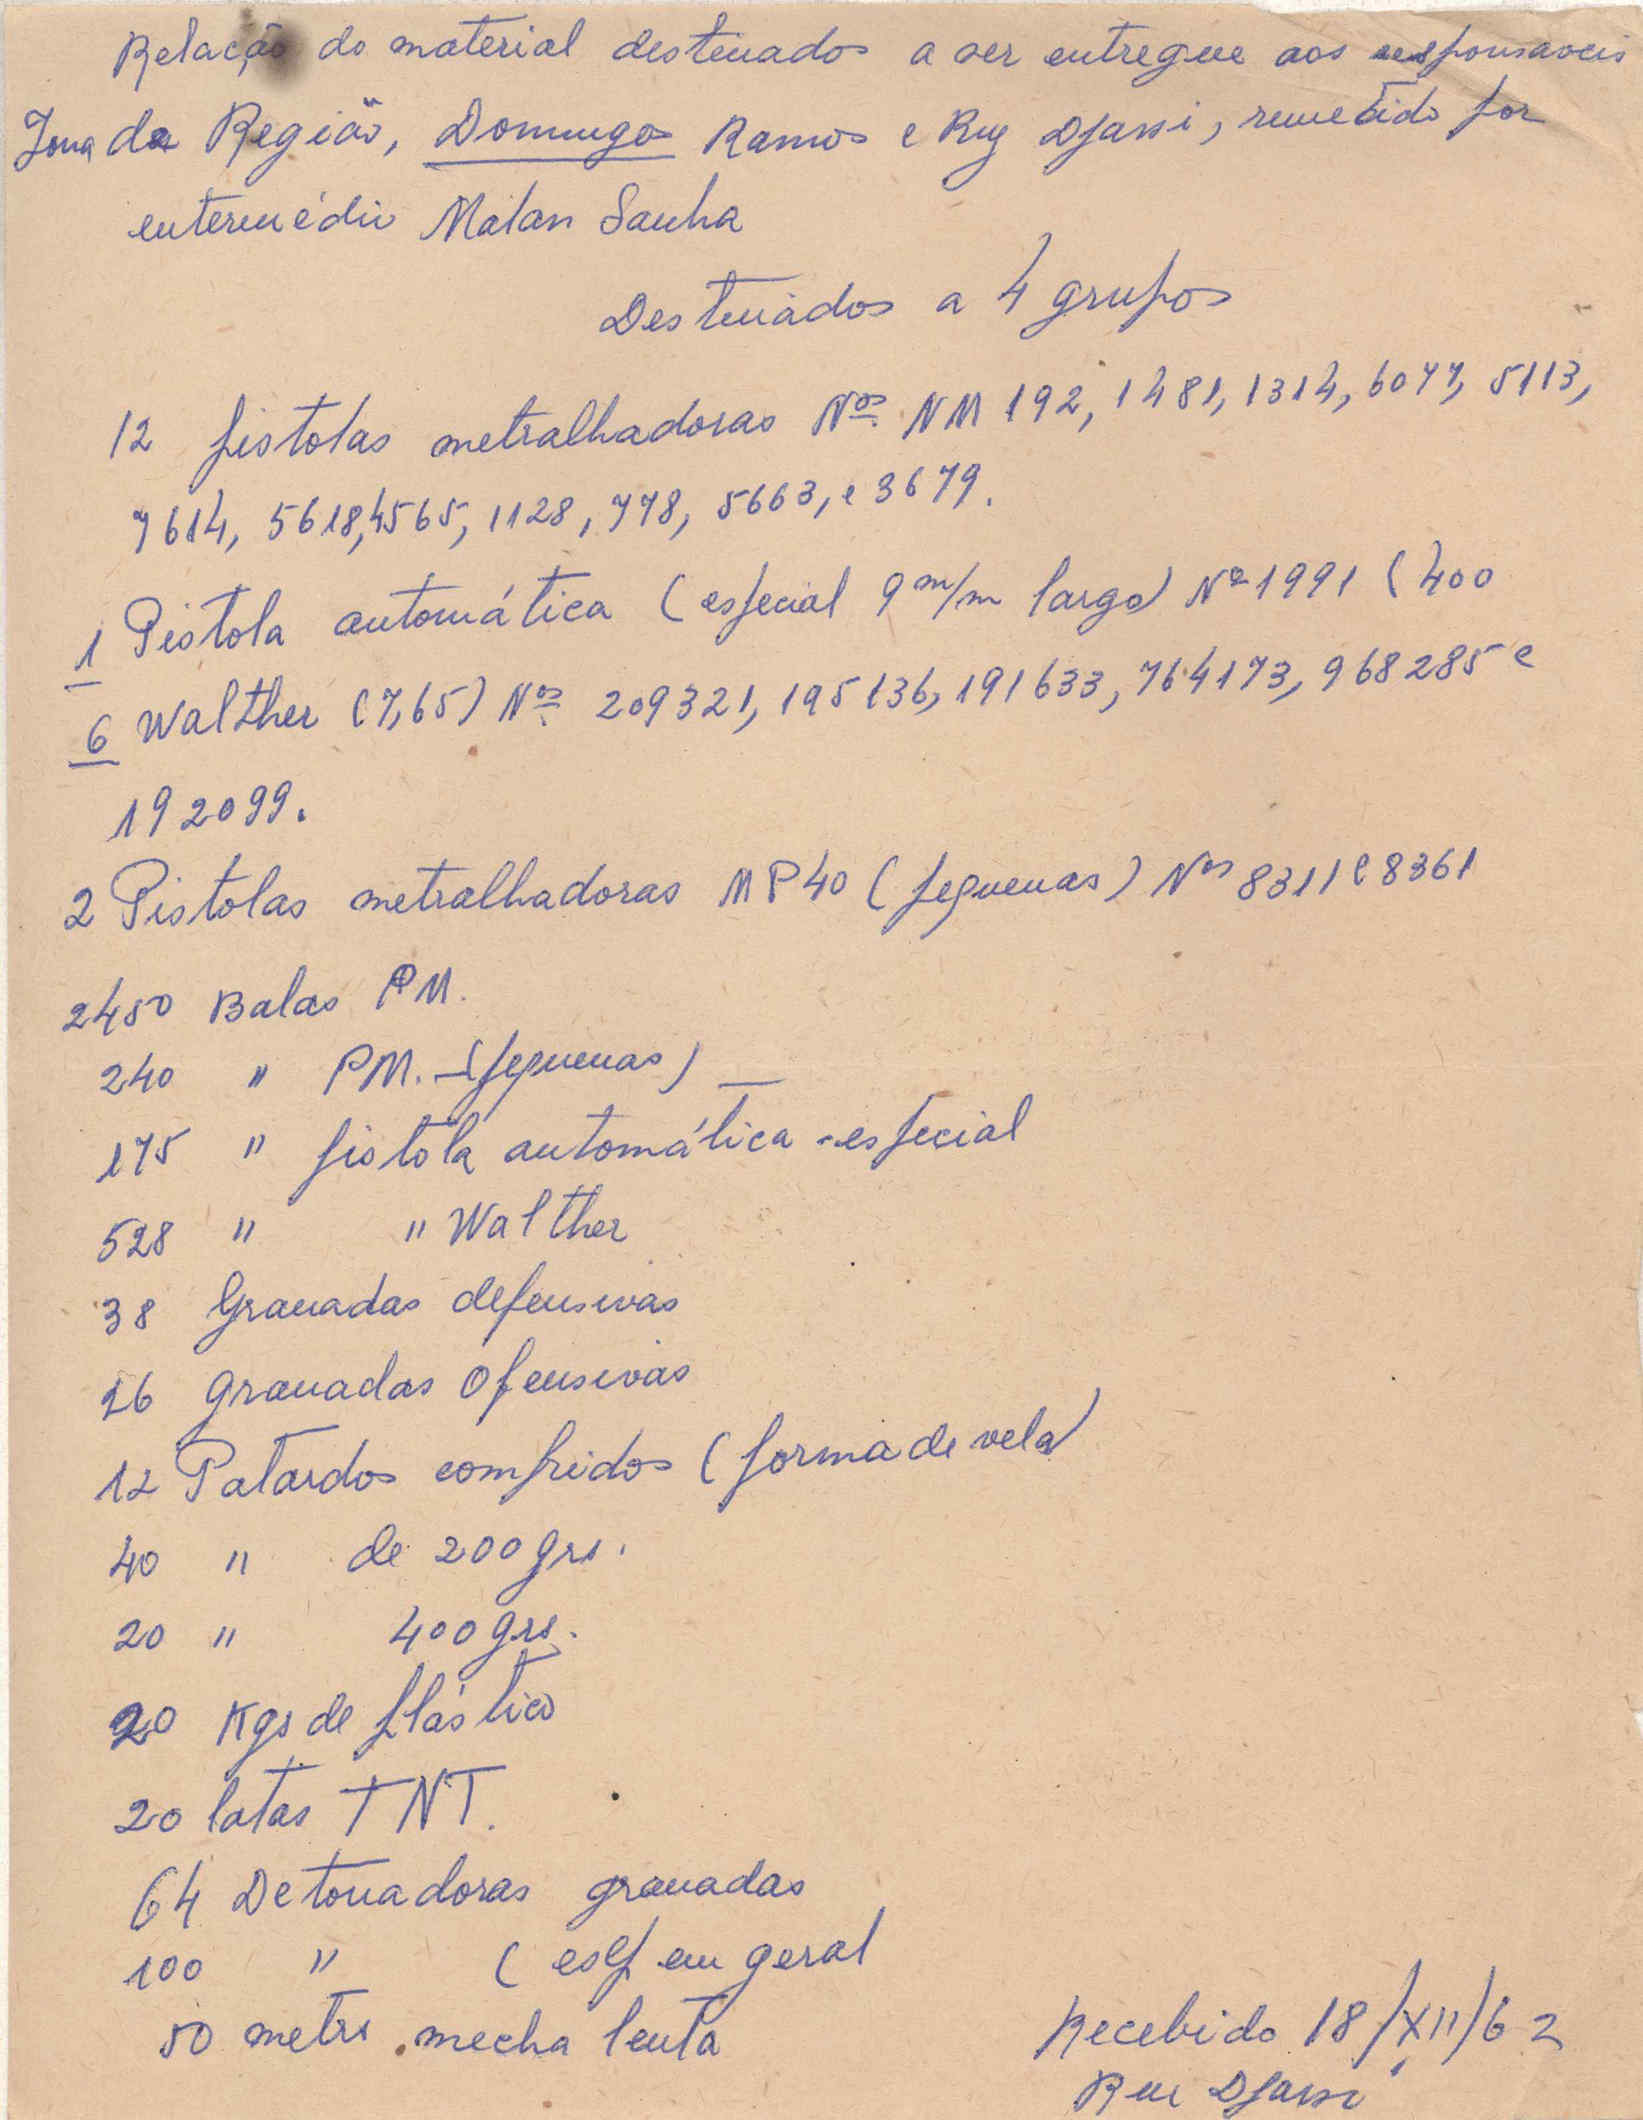 Relação do material destinados a ser entregue aos responsaveis
Zona da Região, Domingos Ramos e Ruy Djassi, remetido por
entermédio Malan Sanha
Destinados a 4 grupos
12 pistolas metralhadoras Nos. NM 192, 1481, 1314, 6077, 5113,
7614, 5618, 4565, 1128, 778, 5663, e 3679.
1 Pistola automática (especial 9 m/m largo) Nº 1991 (400
6 Walther (7,65) Nos. 209321, 195136, 191633, 764173, 968285 e
192099.
2 Pistolas metralhadoras MP40 (pequenas) Nos 8311 e 8361
2450 Balas PM.
240 " PM. - (pequenas) —
175 " pistola automática - especial
528 " " Walther
38 Granadas defensivas
26 granadas Ofensivas
12 Patardos compridos (forma de vela)
40 " de 200 grs.
20 " 400 grs.
20 Kgs de plástico
20 latas TNT.
64 Detonadoras granadas
100 " ( esp em geral
50 metrs . mecha lenta
Recebido 18/XII/62
Rui Djassi